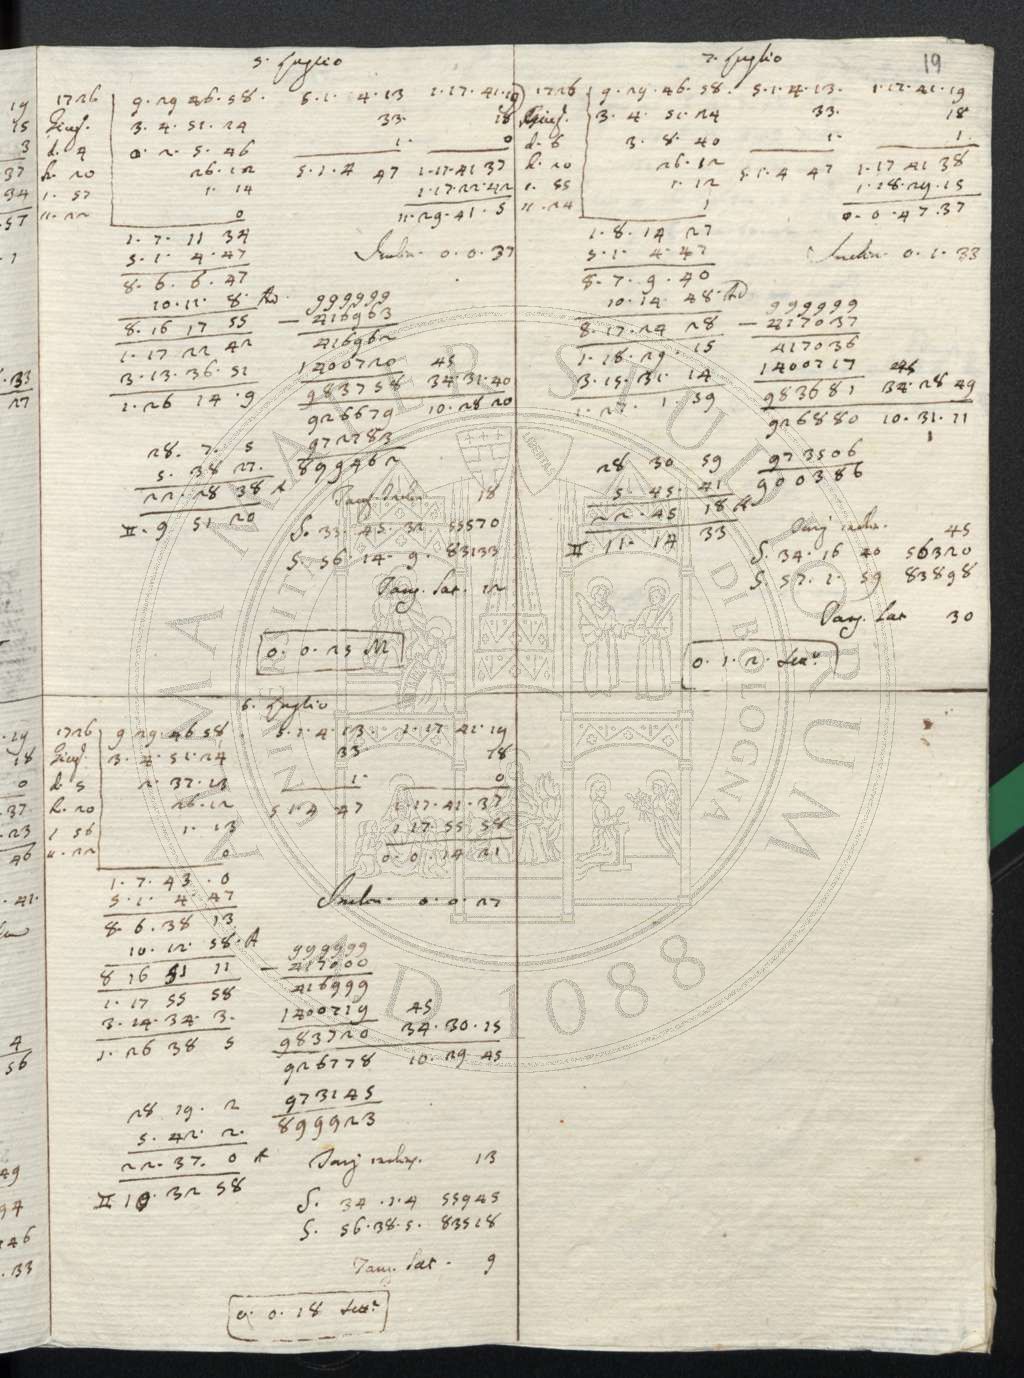 19
5. Luglio
1726 9. 29 46. 58. 5. 1. 4. 13 1. 17. 41. 19
Giug. 3. 4. 51. 24 33. 18
d. 4 0. 2. 5. 46 1. 0
h. 20 26. 12 5. 1. 4 47 1. 17. 41 37
1. 57 1. 14 1. 17. 22. 42
". 22 0 11. 29. 41. 5
1. 7. 11 34
5. 1. 4. 47 Inclin. 0. 0. 37
8. 6. 6. 47
10. 11. 8. Ad. 999999
8. 16 17 55 — 416963
1. 17 22 42 416962
3. 13. 36. 51 1400720 45
1. 26 14. 9 983758 34. 31. 40
926679 10. 28 20
28. 7. 5 972783
5. 38 27. 899462
22. 28 38 A Tang. Inclin. 18
II. 9 51 20 S. 33. 45. 32 55570
S. 56. 14. 9. 83133
Tang. Lat. 12
0. 0. 25 M
7. Luglio
1726 9. 29. 46. 58. 5. 1. 4. 13. 1. 17. 41. 19
Giug. 3. 4. 51. 24 33. 18
d. 6 3. 8. 40 1. 1.
h. 20 26. 12 5. 1. 4 47 1. 17 41 38
1. 55 1. 12 1. 18. 29. 15
". 24 1 0. 0. 47. 37
1. 8. 14 27
5. 1. 4. 47 Inclin. 0. 1. 33
8. 7. 9. 40
10. 14. 48. Ad 999999
8. 17. 24 28 — 417037
1. 18. 29. 15 417036
3. 15. 31. 14 1400717 45
1. 27. 1. 59 983681 34. 28 49
926880 10. 31. 11
1
28 30. 59 973506
5. 45. 41 900386
22. 45 18 A
II 11. 14 33 Tang inclin. 45
S. 34. 16 40 56320
S. 57. 1. 59 83898
Tang. Lat 30
0. 1. 2.
6. Luglio
1726 9 29. 46 58. 5. 1. 4. 13. 1. 17 41. 19
Giug. 3. 4. 51. 24 33. 18
d. 5 2. 37. 13 1. 0
h. 20 26. 12 5 1. 4 47 1. 17. 41. 37
1 56 1. 13 1. 17 55. 58
". 22 0 0. 0. 14 21
1. 7. 43. 0
5. 1. 4. 47 Inclin. 0. 0. 27
8. 6. 38 13
10. 12. 58. A 999999
8 16 51 11 — 417000
1. 17 55 58 416999
3. 14. 34. 3. 1400719 45
1. 26 38 5 983720 34. 30. 15
926778 10. 29 45
28 19. 2 973145
5. 42. 2. 899923
22. 37. 0 A Tang inclin. 13
II 10. 32 58 S. 34. 1. 4 55945
S. 56. 38. 5. 83518
Tang. Lat. 9
0. 0. 18
ALMA MATER STUDIORUM
UNIVERSITÀ DI BOLOGNA
A D 1088
LIBERTAS